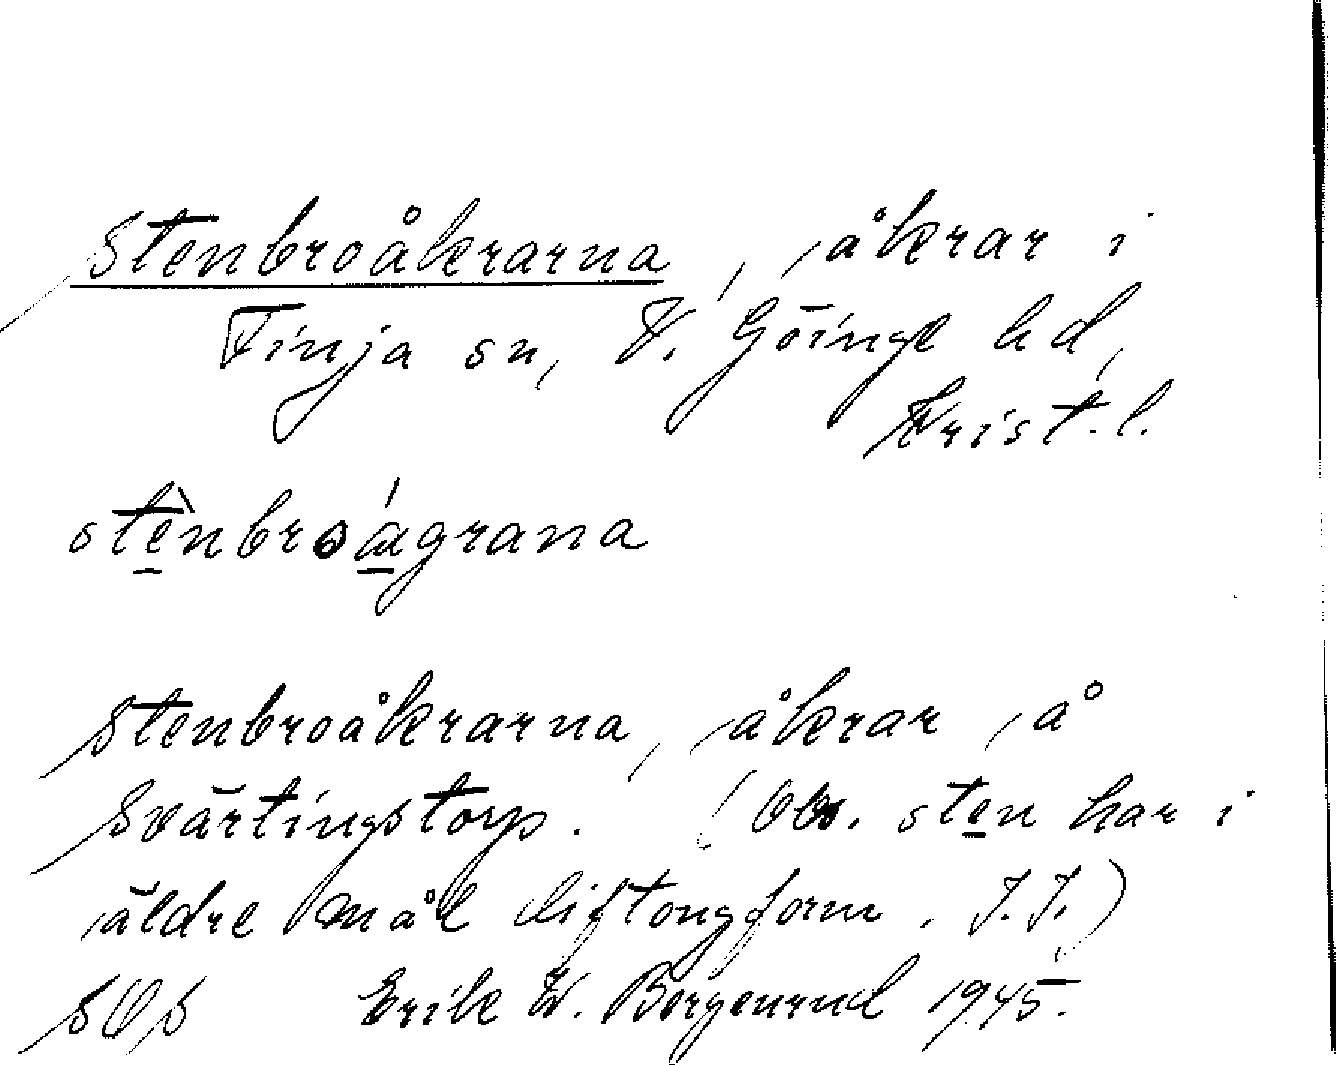 Stenbroåkrarna, åkrar i
Finja sn, V. Göinge hd,
Krist. l.
stènbroágrana
Stenbroåkrarna, åkrar å
Svärtingstorp. (Obs. sten har i
äldre mål diftongform. J.J.)
Erik W. Bergenrud 1945.